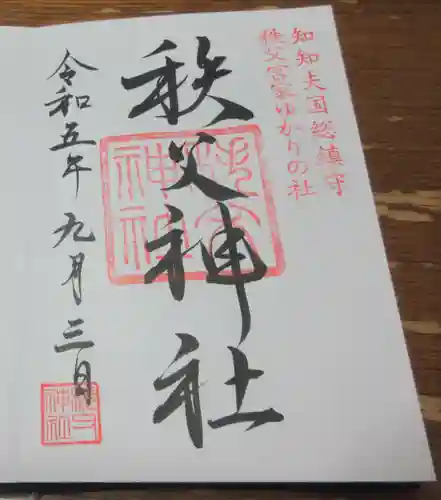 知知夫国総鎮守
秩父宮家ゆかりの社
秩父神社
秩父神社
令和五年九月三日
秩父神社